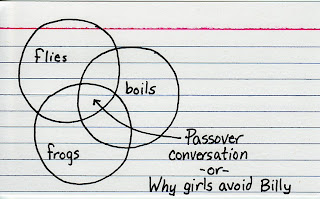 flies
boils
frogs
Passover
conversation
-or-
Why girls avoid Billy